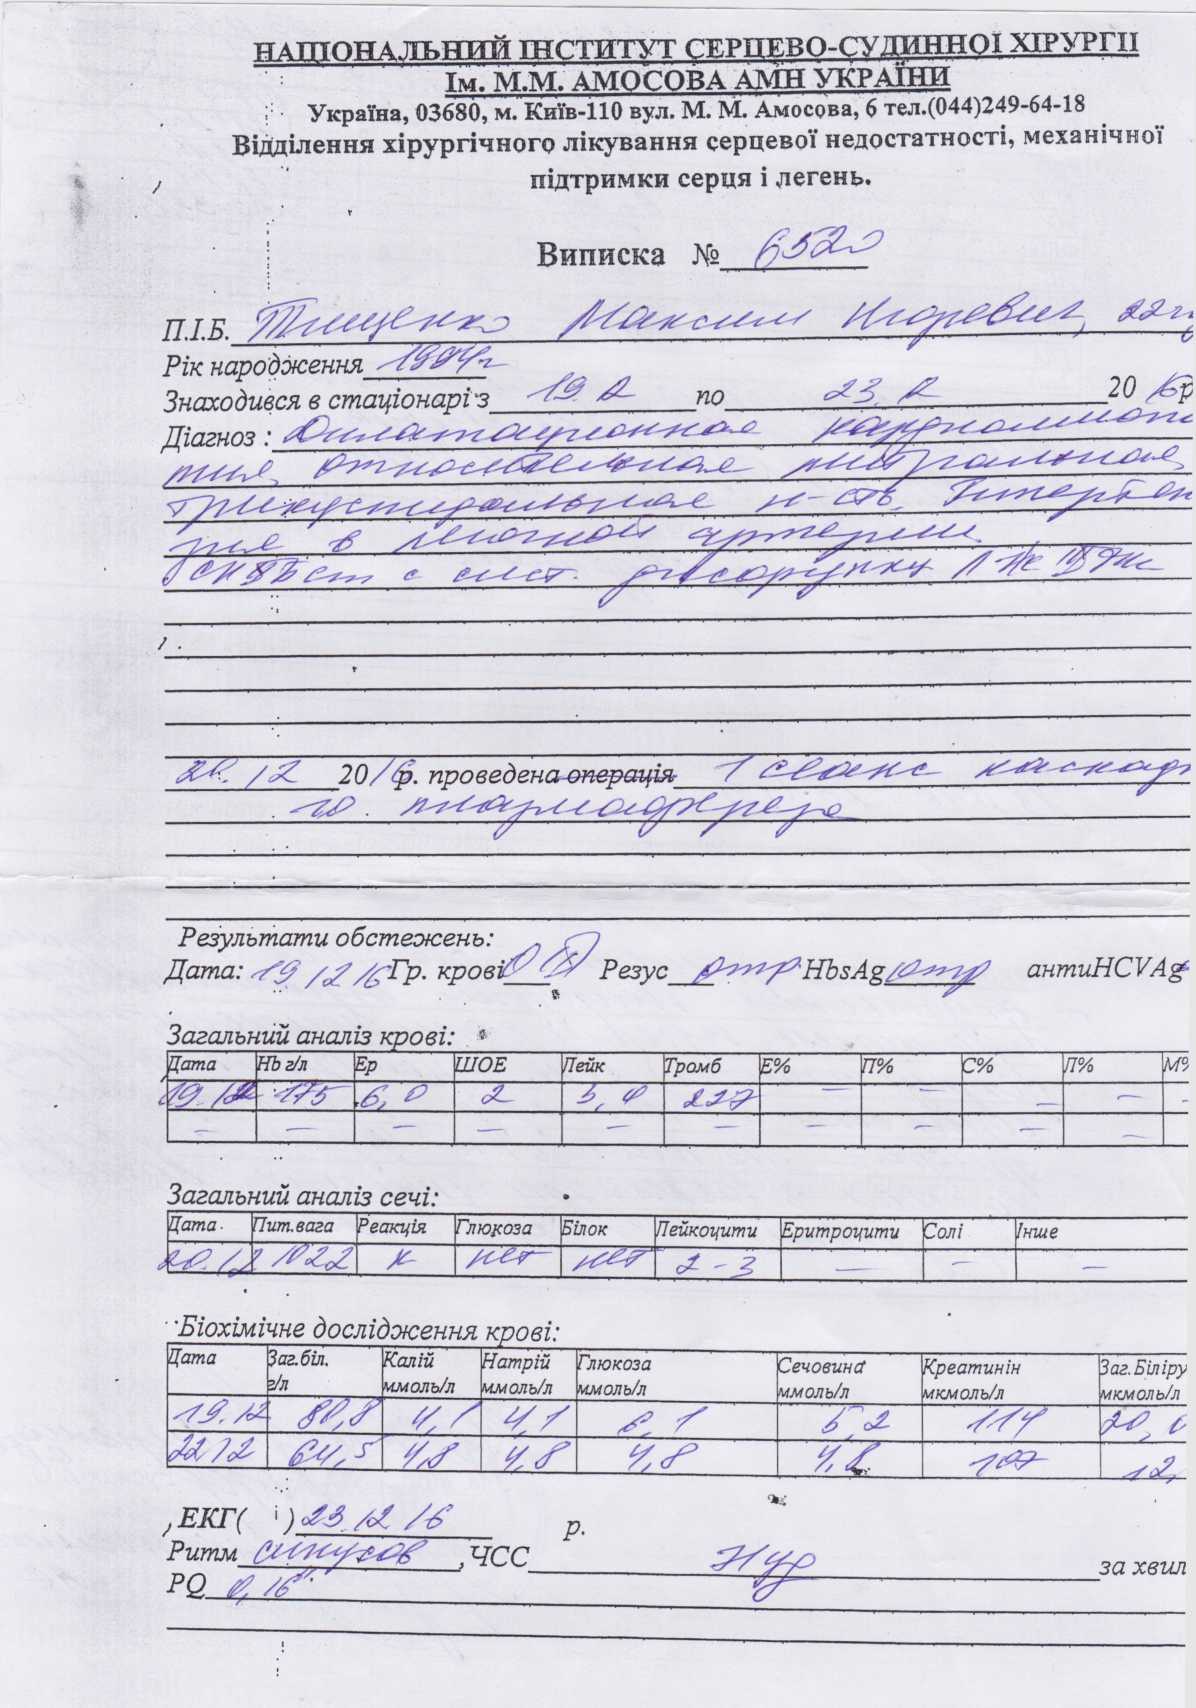 НАЦІОНАЛЬНИЙ ІНСТИТУТ СЕРЦЕВО-СУДИННОЇ ХІРУРГІІ
Ім. М.М. АМОСОВА АМН УКРАЇНИ
Україна, 03680, м. Київ-110 вул. М. М. Амосова, 6 тел.(044)249-64-18
Відділення хірургічного лікування серцевої недостатності, механічної
підтримки серця і легень.
Виписка № 6520
П.І.Б. Тищенко Максим Игоревич, 22г
Рік народження 1994г
Знаходився в стаціонарі з 19.12 по 23.12 2016р
Діагноз : Дилатационная кардиомиопа
тия, относительная митральная,
трикуспидальная н-сть. Гипертен
зия в легочной артерии.
с сист. дисфункц ЛЖ
20.12 2016р. проведена операція 1 сеанс каскад
го плазмафереза
Результати обстежень:
Дата: 19.12.16 Гр. крові О(I) Резус отр HbsAg отр антиHCVAg
Загальний аналіз крові:
Дата Hb г/л Ер ШОЕ Лейк Тромб Е% П% С% Л% М%
19.12 175 6,0 2 227 — — — — -
— — — — — — — — — —
Загальний аналіз сечі:
Дата Пит.вага Реакція Глюкоза Білок Лейкоцити Еритроцити Солі Інше
20.12 1022 к нет нет 2-3 — — —
Біохімічне дослідження крові:
Дата Заг.біл. Калій Натрій Глюкоза Сечовина Креатинін Заг.Біліру
г/л ммоль/л ммоль/л ммоль/л ммоль/л мкмоль/л мкмоль/л
19.12 80,8 4,1 4,1 6,1 5,2 114 20,0
22.12 64,5 4,8 4,8 4,8 4,8 107 12,
ЕКГ( ) 23.12.16 р.
Ритм синусов, ЧСС за хвил
PQ 0,16"